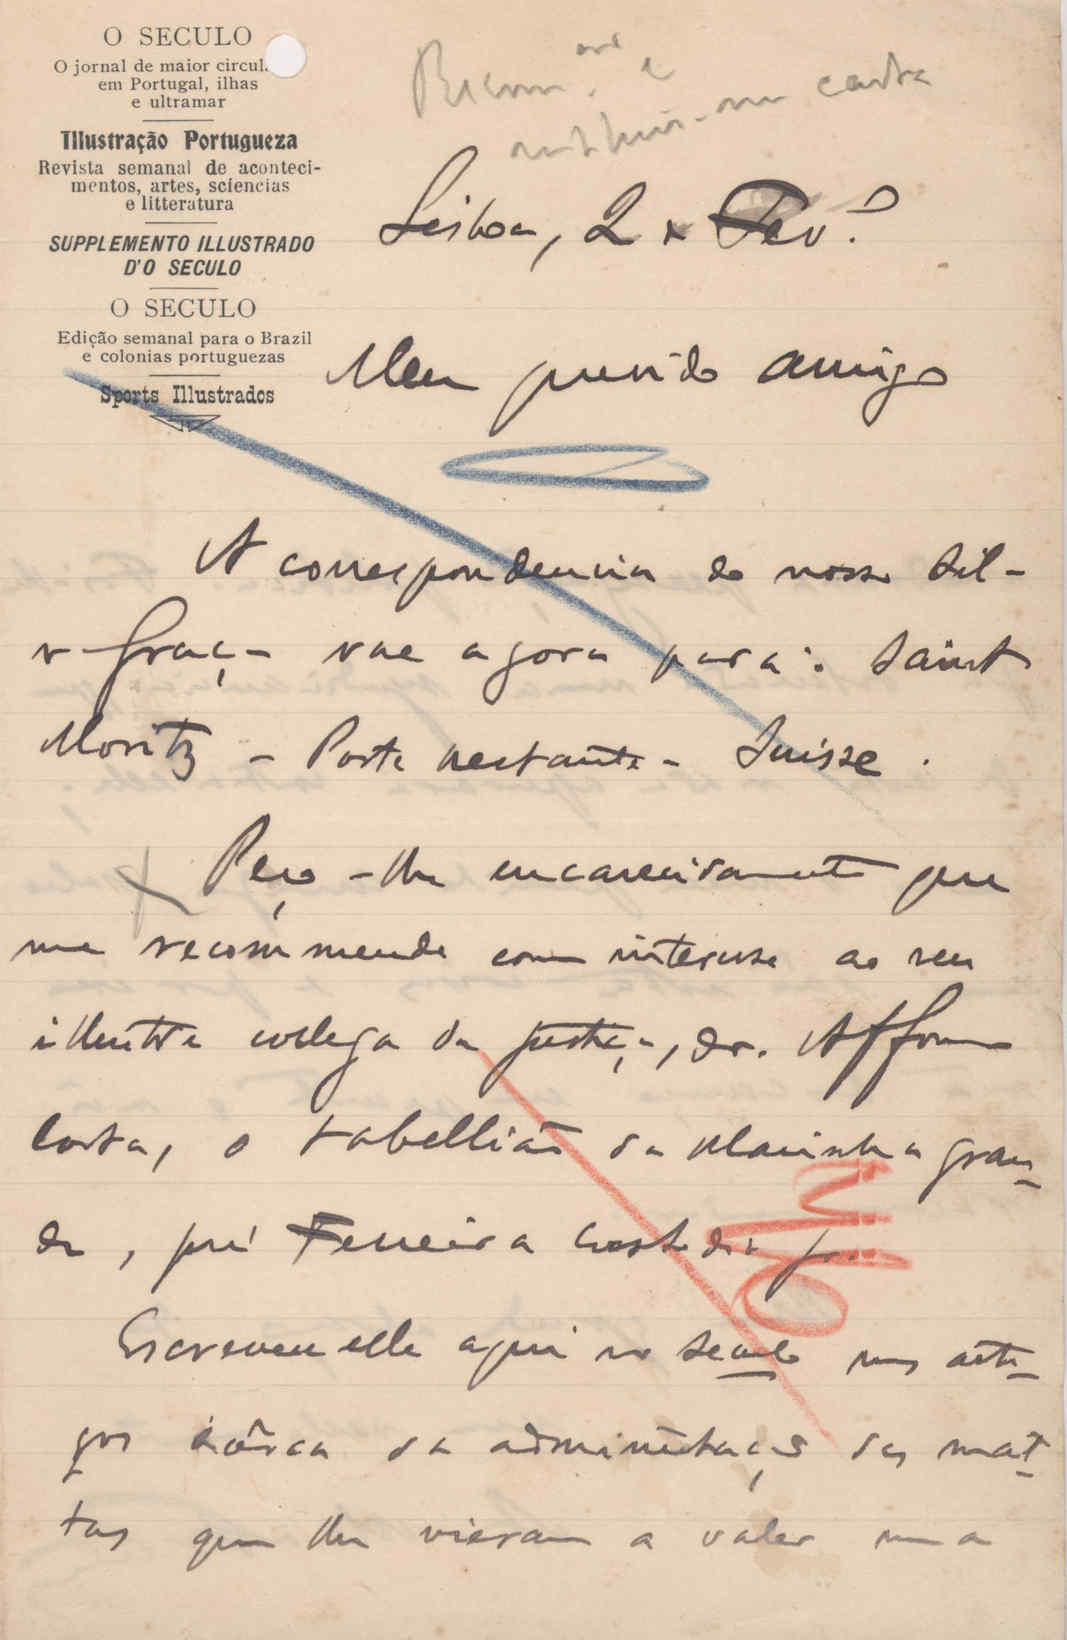 O SECULO
O jornal de maior circul.
em Portugal, ilhas
e ultramar
Illustração Portugueza
Revista semanal de aconteci-
mentos, artes, sciencias
e litteratura
SUPPLEMENTO ILLUSTRADO
D'O SECULO
O SECULO
Edição semanal para o Brazil
e colonias portuguezas
Sports Illustrados
carta
Lisboa, 2 Fev.º
Meu querido amigo
A correspondencia do nosso Sil-
va Graça vae agora para: Saint
Moritz – Poste restante – Suisse.
Peço-lhe encarecidamente que
me recommende com interesse ao seu
illustre collega da Justiça, dr. Affonso
Costa, o tabellião da Marinha Gran-
de, José Ferreira Custodio Jr.
Escreveu elle aqui no Seculo uns arti-
gos ácêrca da administração das mat-
tas que lhe vieram a valer uma